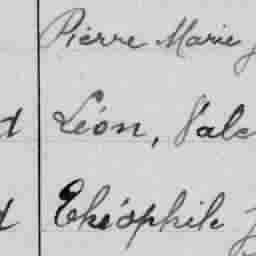 Pierre Marie J
d Léon, Vale
d Théophile J